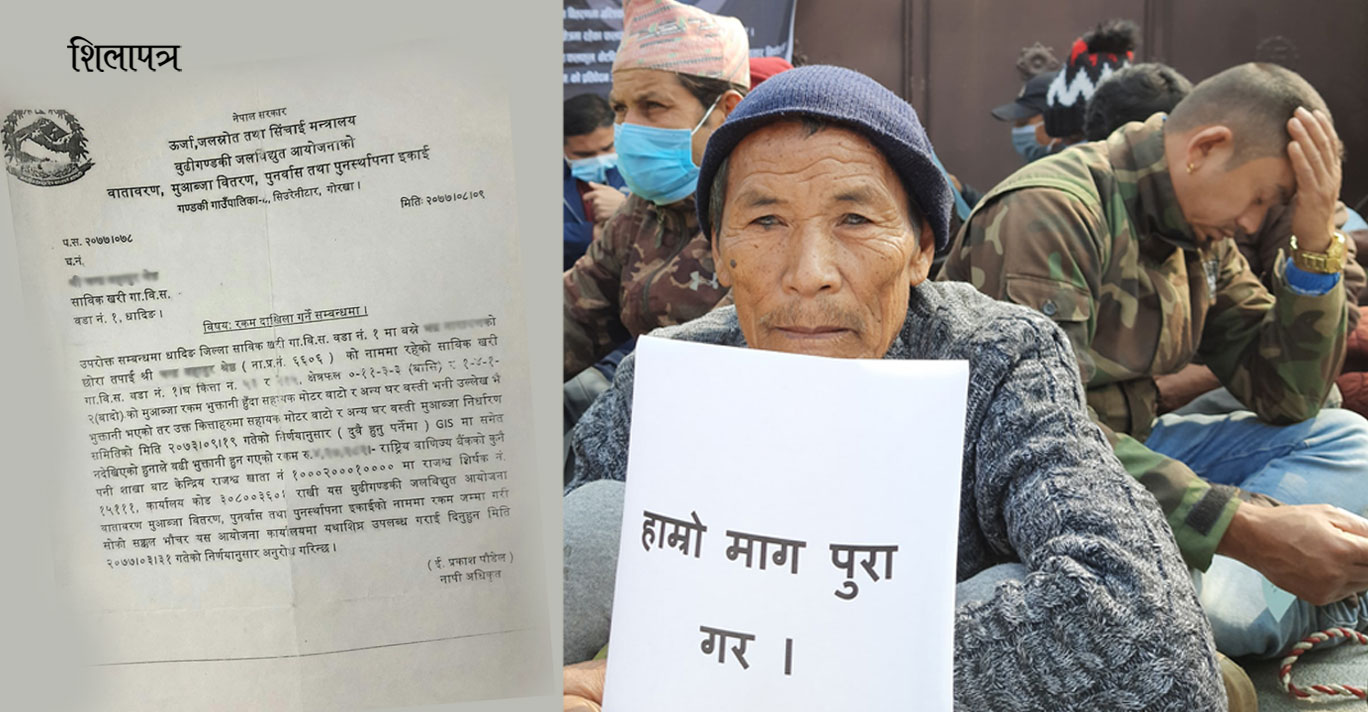 शिलापत्र
नेपाल सरकार
ऊर्जा,जलस्रोत तथा सिंचाई मन्त्रालय
बुढीगण्डकी जलविद्युत आयोजनाको
वातावरण, मुआब्जा वितरण, पुनर्वास तथा पुनर्स्थापना इकाई
गण्डकी गाउँपालिका-८, सिउरेनीटार, गोरखा ।
मितिः २०७७।०८।०९
प.स. २०७७।०७८
च.नं.
श्री
साविक खरी गा.वि.स.
वडा नं. १, धादिङ ।
विषय: रकम दाखिला गर्ने सम्बन्धमा ।
उपरोक्त सम्बन्धमा धादिङ जिल्ला साविक खरी गा.वि.स. वडा नं. १ मा बस्ने को
छोरा तपाई श्री ( ना.प्र.नं. ६६०६ ) को नाममा रहेको साविक खरी
गा.वि.स. वडा नं. १।घ कित्ता नं. र क्षेत्रफल ०-११-३-३ (बारि) र १-४-१-
२(बादो) को मुआब्जा रकम भुक्तानी हुँदा सहायक मोटर बाटो र अन्य घर बस्ती भनी उल्लेख भै
भुक्तानी भएको तर उक्त कित्ताहरुमा सहायक मोटर बाटो र अन्य घर बस्ती मुआब्जा निर्धारण
समितिको मिति २०७३।०९।१९ गतेको निर्णयानुसार ( दुवै हुनु पर्नेमा ) GIS मा समेत
नदेखिएको हुनाले बढी भुक्तानी हुन गएकी रकम रु. राष्ट्रिय वाणिज्य बैंकको कुनै
पनी शाखा बाट केन्द्रिय राजश्व खाता नं १०००२०००१०००० मा राजश्व शिर्षक नं.
१५१११, कार्यालय कोड ३०८००३६०१ राखी यस बुढीगण्डकी जलविद्युत आयोजना
वातावरण मुआब्जा वितरण, पुनर्वास तथा पुनर्स्थापना इकाईको नाममा रकम जम्मा गरी
सोको सक्कल भौचर यस आयोजना कार्यालयमा यथाशिघ्र उपलब्ध गराई दिनुहुन मिति
२०७७।०३।३१ गतेको निर्णयानुसार अनुरोध गरिन्छ ।
( ई. प्रकाश पौडेल )
नापी अधिकृत
हाम्रो माग पुरा
गर ।